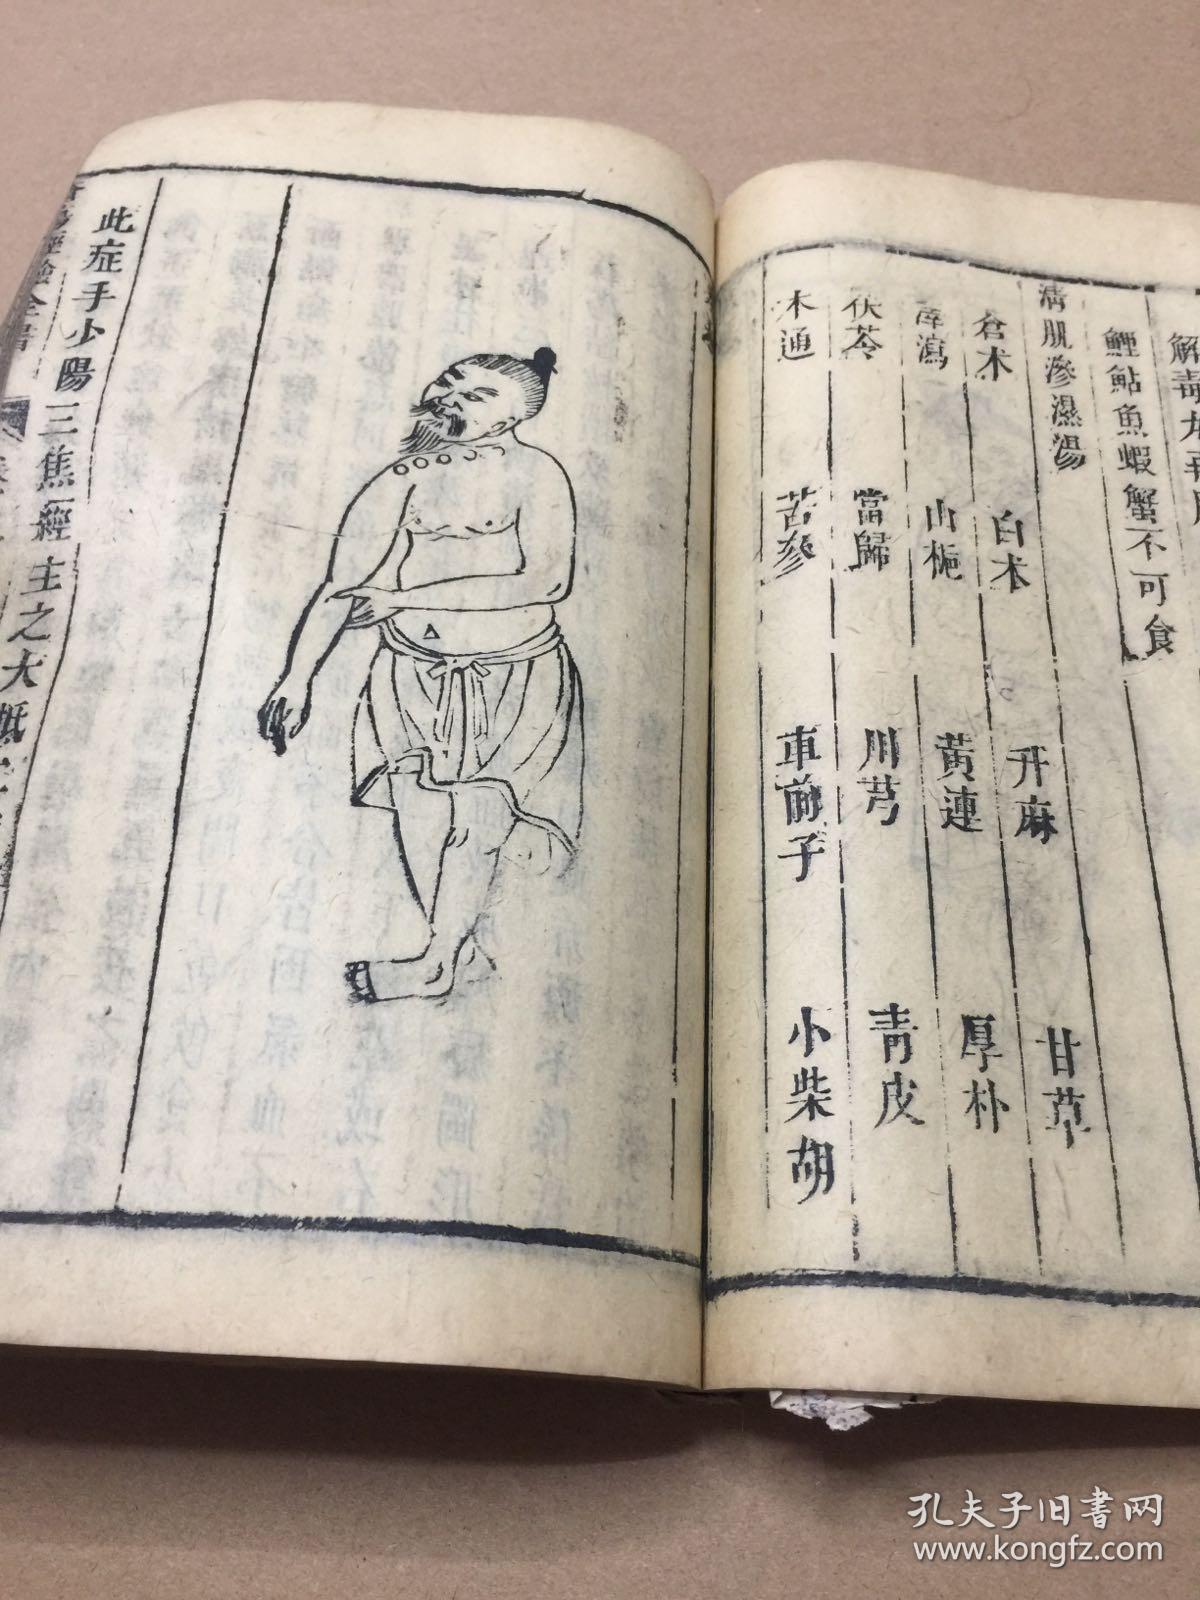 解毒
鯉鮎魚蝦蟹不可食
清肌滲濕湯
倉术 白术 升麻 甘草
澤瀉 山梔 黃連 厚朴
茯苓 當歸 川芎 青皮
木通 苦參 車前子 小柴胡
此症手少陽三焦經主之大概
經驗全書
孔夫子旧书网
www.kongfz.com